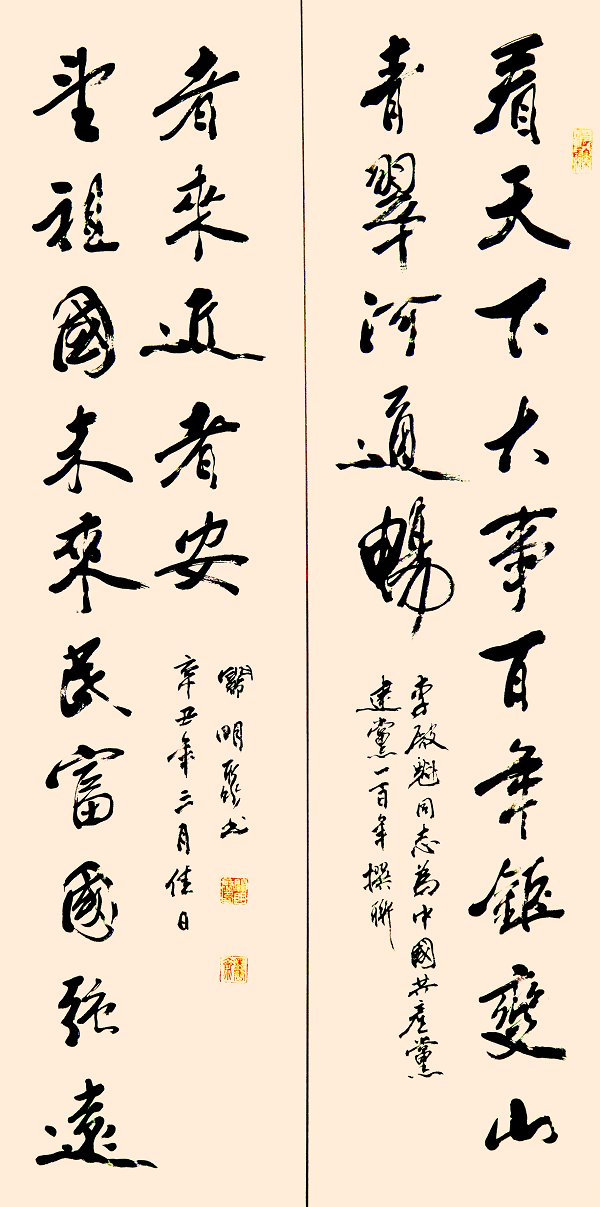 看天下大事百年鉅變山
青翠河通暢
李殿魁同志為中國共產黨
建黨一百年撰聯
望祖國未來民富國強遠
者來近者安
辛丑年三月佳日
關明書